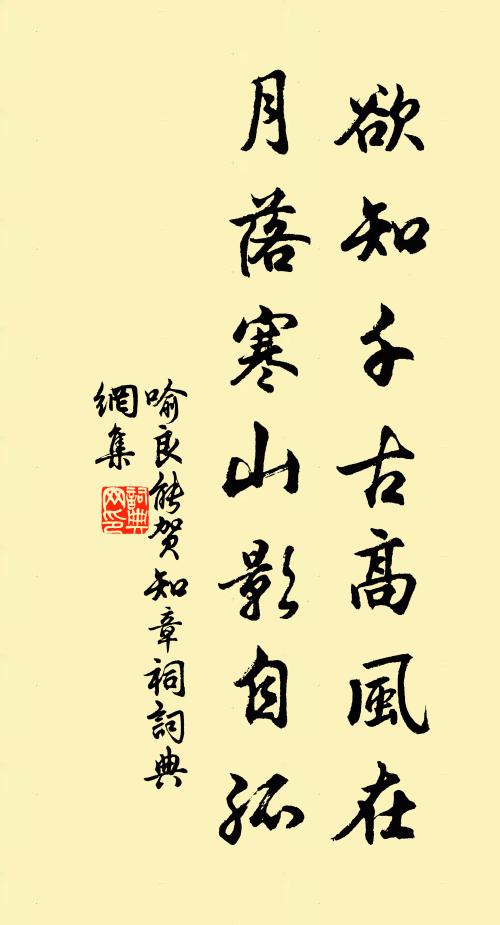 欲知千古高風在
月落寒山影自孤
喻良能賀知章祠詞典
網集
詞典
网印